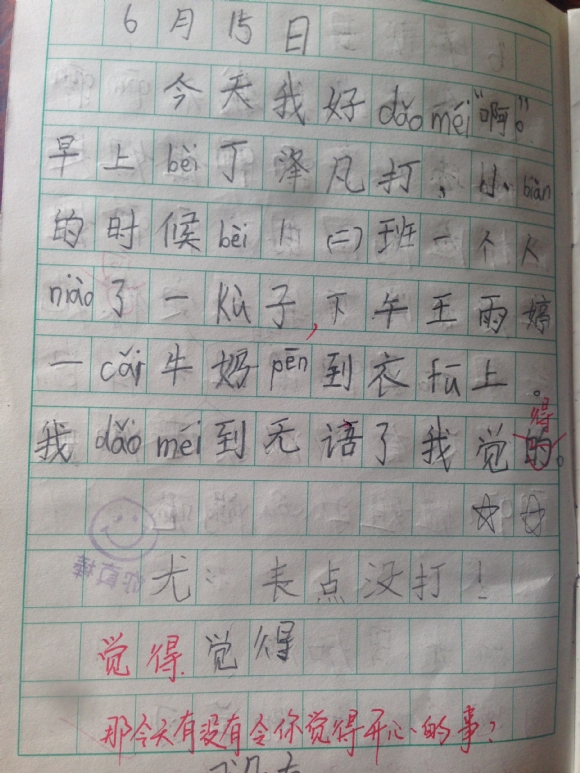 6月15日
今天我好dǎo méi“啊”。
早上bèi丁泽凡打，小biàn
的时候bèi 1（二）班一个人
niào了一Kù子，下午王雨婷
一cǎi牛奶pēn到衣fú上。
我dǎo méi到无语了我觉的。
得
☆☆
你真棒
尤：表点没打！
觉得觉得
那今天有没有令你觉得开心的事？